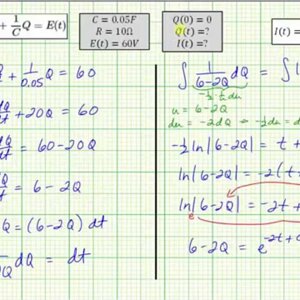 + 1/C Q = E(t)
C = 0.05F
R = 10Ω
E(t) = 60V
Q(0) = 0
Q(t) =?
I(t) =?
I(t) =
dQ/dt + 1/0.05 Q = 60
dQ/dt + 20Q = 60
dQ/dt = 60-20Q
= 6 - 2Q
Q = (6-2Q) dt
dQ = dt
∫ 1/(6-2Q) dQ = ∫
-½·¼ du
u = 6-2Q
du = -2dQ → -½du =
-½ ln|6-2Q| = t +
ln|6-2Q| = -2(t
ln|6-2Q| = -2t +
e
6-2Q = e^-2t+